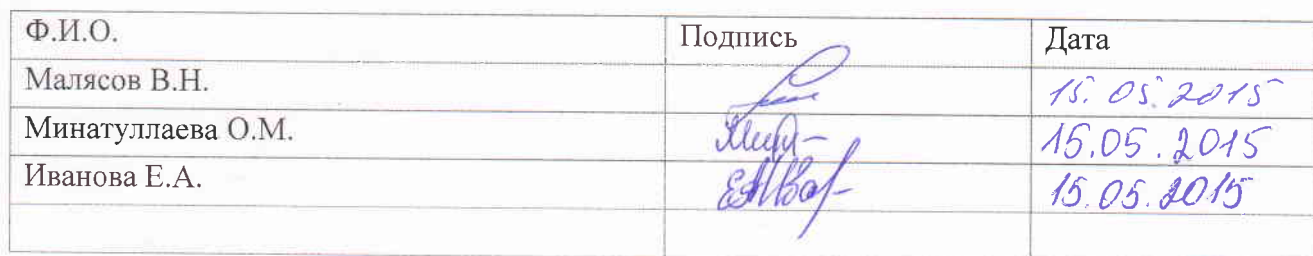 Ф.И.О. Подпись Дата
Малясов В.Н. 15.05.2015
Минатуллаева О.М. 15.05.2015
Иванова Е.А. 15.05.2015